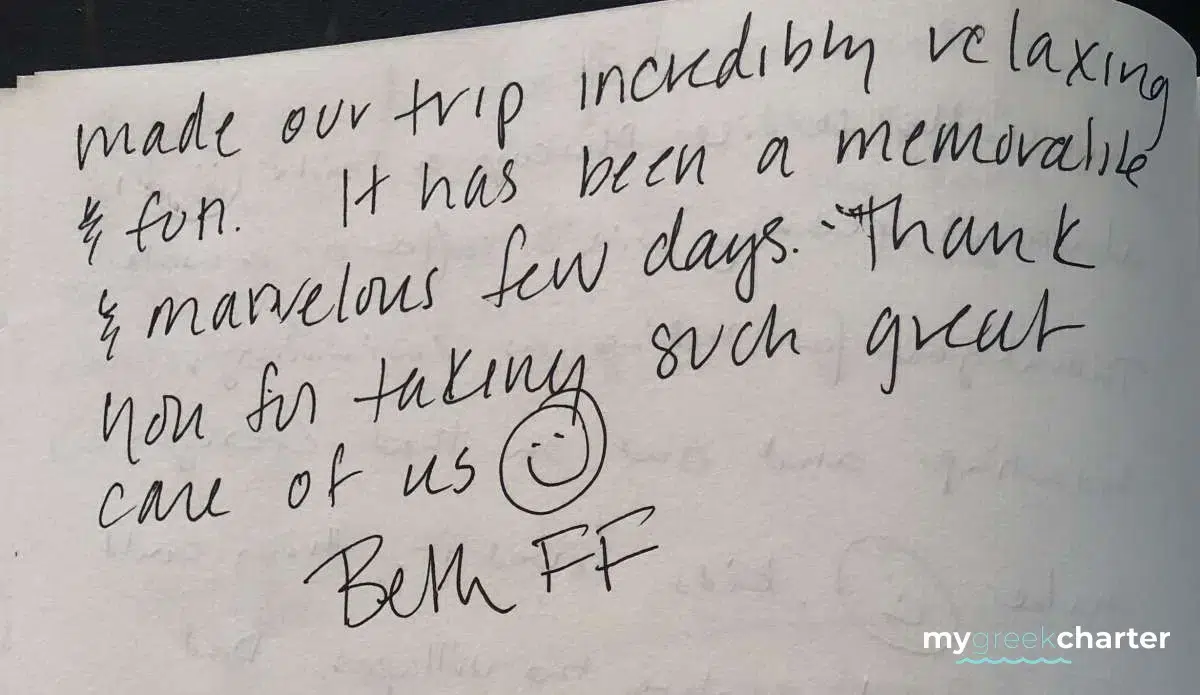 made our trip incredibly relaxing
& fun. It has been a memorable
& marvelous few days. Thank
you for taking such great
care of us
Beth FF
mygreekcharter